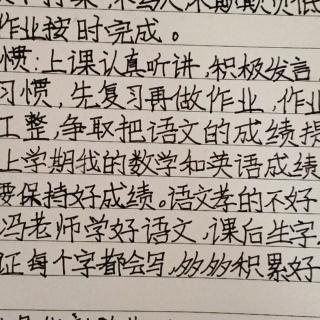 作业按时完成。
惯:上课认真听讲,积极发言,
习惯,先复习再做作业,作业
工整,争取把语文的成绩提
上学期我的数学和英语成绩
要保持好成绩。语文考的不好
冯老师学好语文,课后生字
证每个字都会写,多多积累好